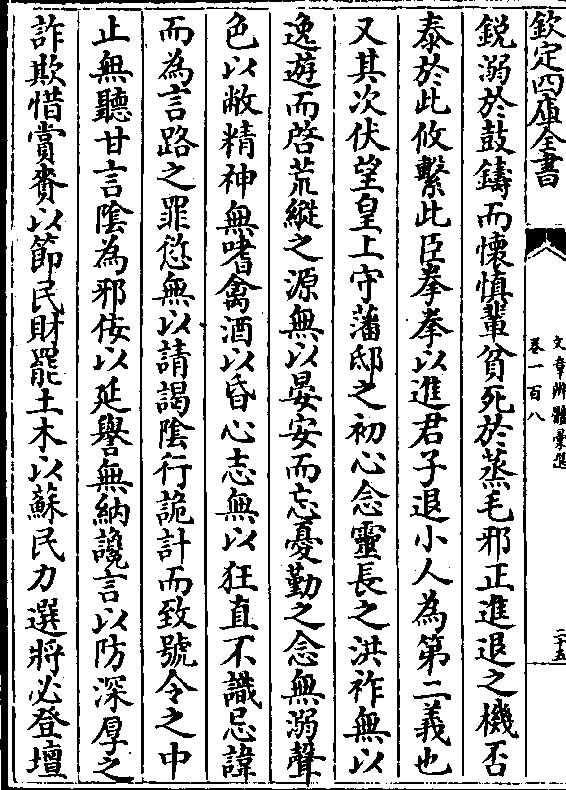 欽定四庫全書
文章辨體彙選
卷一百八
二十五
鋭溺於鼓鑄而懷慎輩貧死於蒸毛邪正進退之機否
泰於此攸繫此臣拳拳以進君子退小人為第二義也
又其次伏望皇上守藩邸之初心念靈長之洪祚無以
逸遊而啓荒縱之源無以晏安而忘憂勤之念無溺聲
色以敝精神無嗜禽酒以昏心志無以狂直不識忌諱
而為言路之罪愆無以請謁陰行詭計而致號令之中
止無聽甘言陰為邪佞以延譽無納讒言以防深厚之
詐欺惜賞賚以節民財罷土木以蘇民力選將必登壇